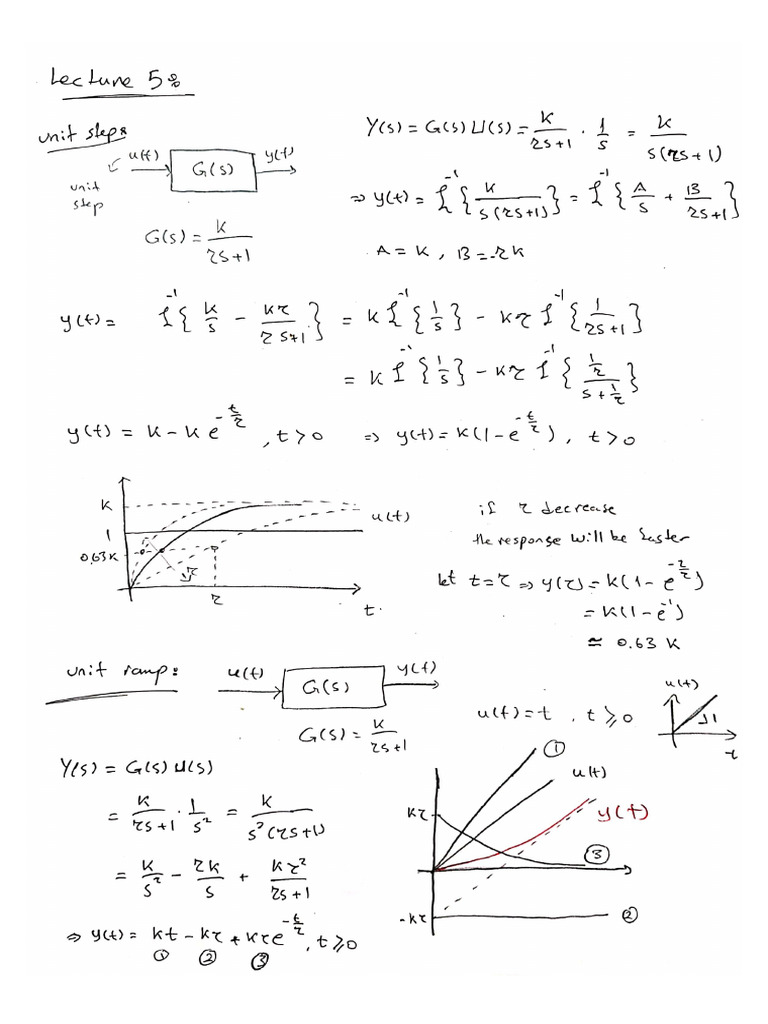 Lecture 5:
unit step:
u(t) G(s) y(t)
unit
step
G(s) = K/(τs+1)
Y(s) = G(s) U(s) = K/(τs+1) · 1/s = K/(s(τs+1))
⇒ y(t) = ℒ⁻¹{K/(s(τs+1))} = ℒ⁻¹{A/s + B/(τs+1)}
A = K, B = -τK
y(t) = ℒ⁻¹{K/s - Kτ/(τs+1)} = K ℒ⁻¹{1/s} - Kτ ℒ⁻¹{1/(τs+1)}
= K ℒ⁻¹{1/s} - Kτ ℒ⁻¹{(1/τ)/(s+1/τ)}
y(t) = K - K e^(-t/τ), t>0 ⇒ y(t) = K(1-e^(-t/τ)), t>0
K
1
0.63K
u(t)
τ
τ
t
if τ decrease
the response will be faster
let t=τ ⇒ y(τ) = K(1-e^(-τ/τ))
= K(1-e^(-1))
≃ 0.63 K
unit ramp:
u(t) G(s) y(t)
G(s) = K/(τs+1)
u(t) = t, t≥0
u(t)
1
t
Y(s) = G(s) U(s)
= K/(τs+1) · 1/s² = K/(s²(τs+1))
= K/s² - τK/s + Kτ²/(τs+1)
⇒ y(t) = Kt - Kτ + Kτe^(-t/τ), t≥0
① ② ③
①
u(t)
Kτ
y(t)
③
-Kτ
②